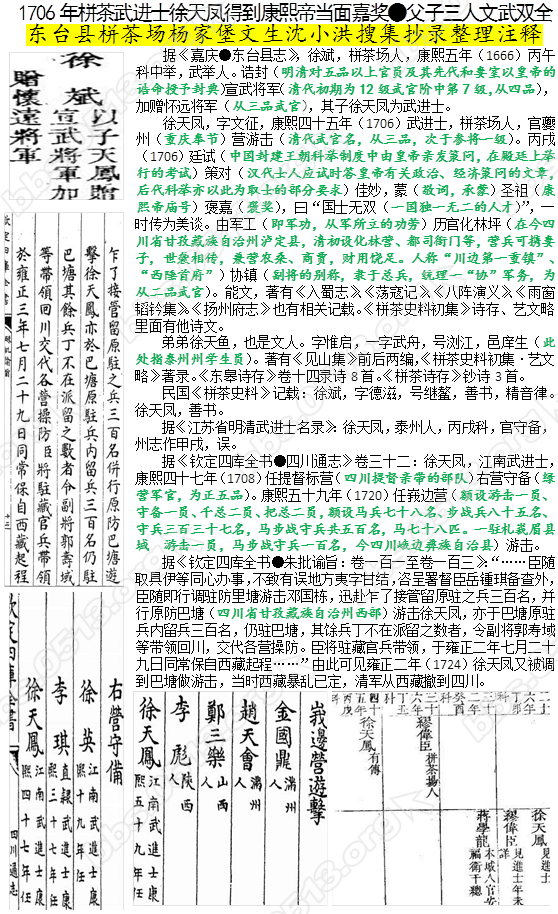 1706年栟茶武进士徐天凤得到康熙帝当面嘉奖●父子三人文武双全
东台县栟茶场杨家堡文生沈小洪搜集抄录整理注释
据《嘉庆●东台县志》，徐斌，栟茶场人，康熙五年（1666）丙午
科中举，武举人。诰封（明清对五品以上官员及其先代和妻室以皇帝的
诰命授予封典)宣武将军(清代初期为12级武官阶中第7级,从四品)，
加赠怀远将军（从三品武官），其子徐天凤为武进士。
徐天凤，字文征，康熙四十五年(1706)武进士，栟茶场人，官夔
州（重庆奉节）营游击（清代武官名，从三品，次于参将一级）。丙戌
（1706）廷试（中国封建王朝科举制度中由皇帝亲发策问，在殿廷上举
行的考试）策对（汉代士人应试时答皇帝有关政治、经济策问的文章，
后代科举亦以此为取士的部分要求）佳妙，蒙（敬词，承蒙）圣祖（康
熙帝庙号）褒嘉（褒奖），曰“国士无双（一国独一无二的人才）”，一
时传为美谈。由军工（即军功，从军所立的功劳）历官化林坪（在今四
川省甘孜藏族自治州泸定县，清初设化林营、都司衙门等，营兵可携妻
子，世袭相传，兼营农桑、商贾，财用饶足。人称“川边第一重镇”、
“西陲首府”）协镇（副将的别称，隶于总兵，统理一“协”军务，为
从二品武官）。能文，著有《入蜀志》《荡寇记》《八阵演义》《雨窗
韬钤集》。《扬州府志》也有相关记载。《栟茶史料初集》诗存、艺文略
里面有他诗文。
弟弟徐天鱼，也是文人。字惟启，一字武舟，号浏江，邑庠生（此
处指泰州州学生员）。著有《见山集》前后两编，《栟茶史料初集·艺文
略》著录。《东皋诗存》卷十四录诗8首。《栟茶诗存》钞诗3首。
民国《栟茶史料》记载：徐斌，字德滋，号继鳌，善书，精音律。
徐天凤，善书。
据《江苏省明清武进士名录》：徐天凤，泰州人，丙戌科，官守备，
州志作甲戌，误。
据《钦定四库全书●四川通志》卷三十二：徐天凤，江南武进士，
康熙四十七年（1708）任提督标营（四川提督亲带的部队)右营守备（绿
营军官，为正五品）。康熙五十九年（1720）任峩边营（额设游击一员、
守备一员、千总二员、把总二员，额设马兵七十八名、步战兵八十五名、
守兵三百三十七名，马步战守兵共五百名，马七十八匹。一驻札峩眉县
域 游击一员，马步战守兵一百名，今四川峡边彝族自治县）游击。
据《钦定四库全书●朱批谕旨：卷一百一至卷一百三》：“……臣随
取具伊等同心办事，不致有误地方夷字甘结，咨呈署督臣岳锺琪备查外，
臣随即行调驻防里塘游击邓国栋，迅赴乍了接管留原驻之兵三百名，并
行原防巴塘（四川省甘孜藏族自治州西部）游击徐天凤，亦于巴塘原驻
兵内留兵三百名，仍驻巴塘，其馀兵丁不在派留之数者，令副将郭寿域
等带领回川，交代各营操防。臣将驻藏官兵带领，于雍正二年七月二十
九日同常保自西藏起程……”由此可见雍正二年（1724）徐天凤又被调
到巴塘做游击，当时西藏暴乱已定，清军从西藏撤到四川。
徐斌 以子天鳳贈
宣武將軍加
贈懷遠將軍
乍了接管留原駐之兵三百名併行原防巴塘遊
擊徐天鳳亦於巴塘原駐兵內留兵三百名仍駐
巴塘其餘兵丁不在派留之數者令副將郭壽域
等帶領回川交代各營操防臣將駐藏官兵帶領
於雍正二年七月二十九日同常保自西藏起程
右營守備
徐英 江南武進士康熙十九年任
李琪 直隸武進士康熙三十七年任
徐天鳳 江南武進士康熙四十七年任
欽定四庫全書 四川通志
峩邊營遊擊
金國鼎 滿州人
趙天會 滿州人
鄭三樂 山西人
李彪 陝西人
徐天鳳 江南武進士康熙五十九年任
繆偉臣 栟茶場人
徐天鳳 有傳
徐天鳳 見進士
繆偉臣 見進士年未詳
蔣學龍